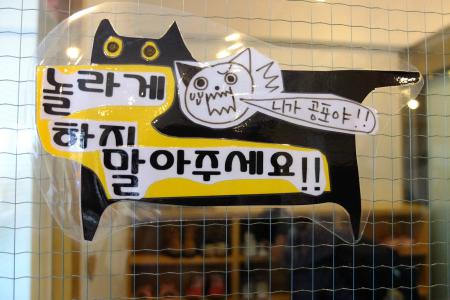 놀라게
하지
말아주세요!!
니가 공포야!!